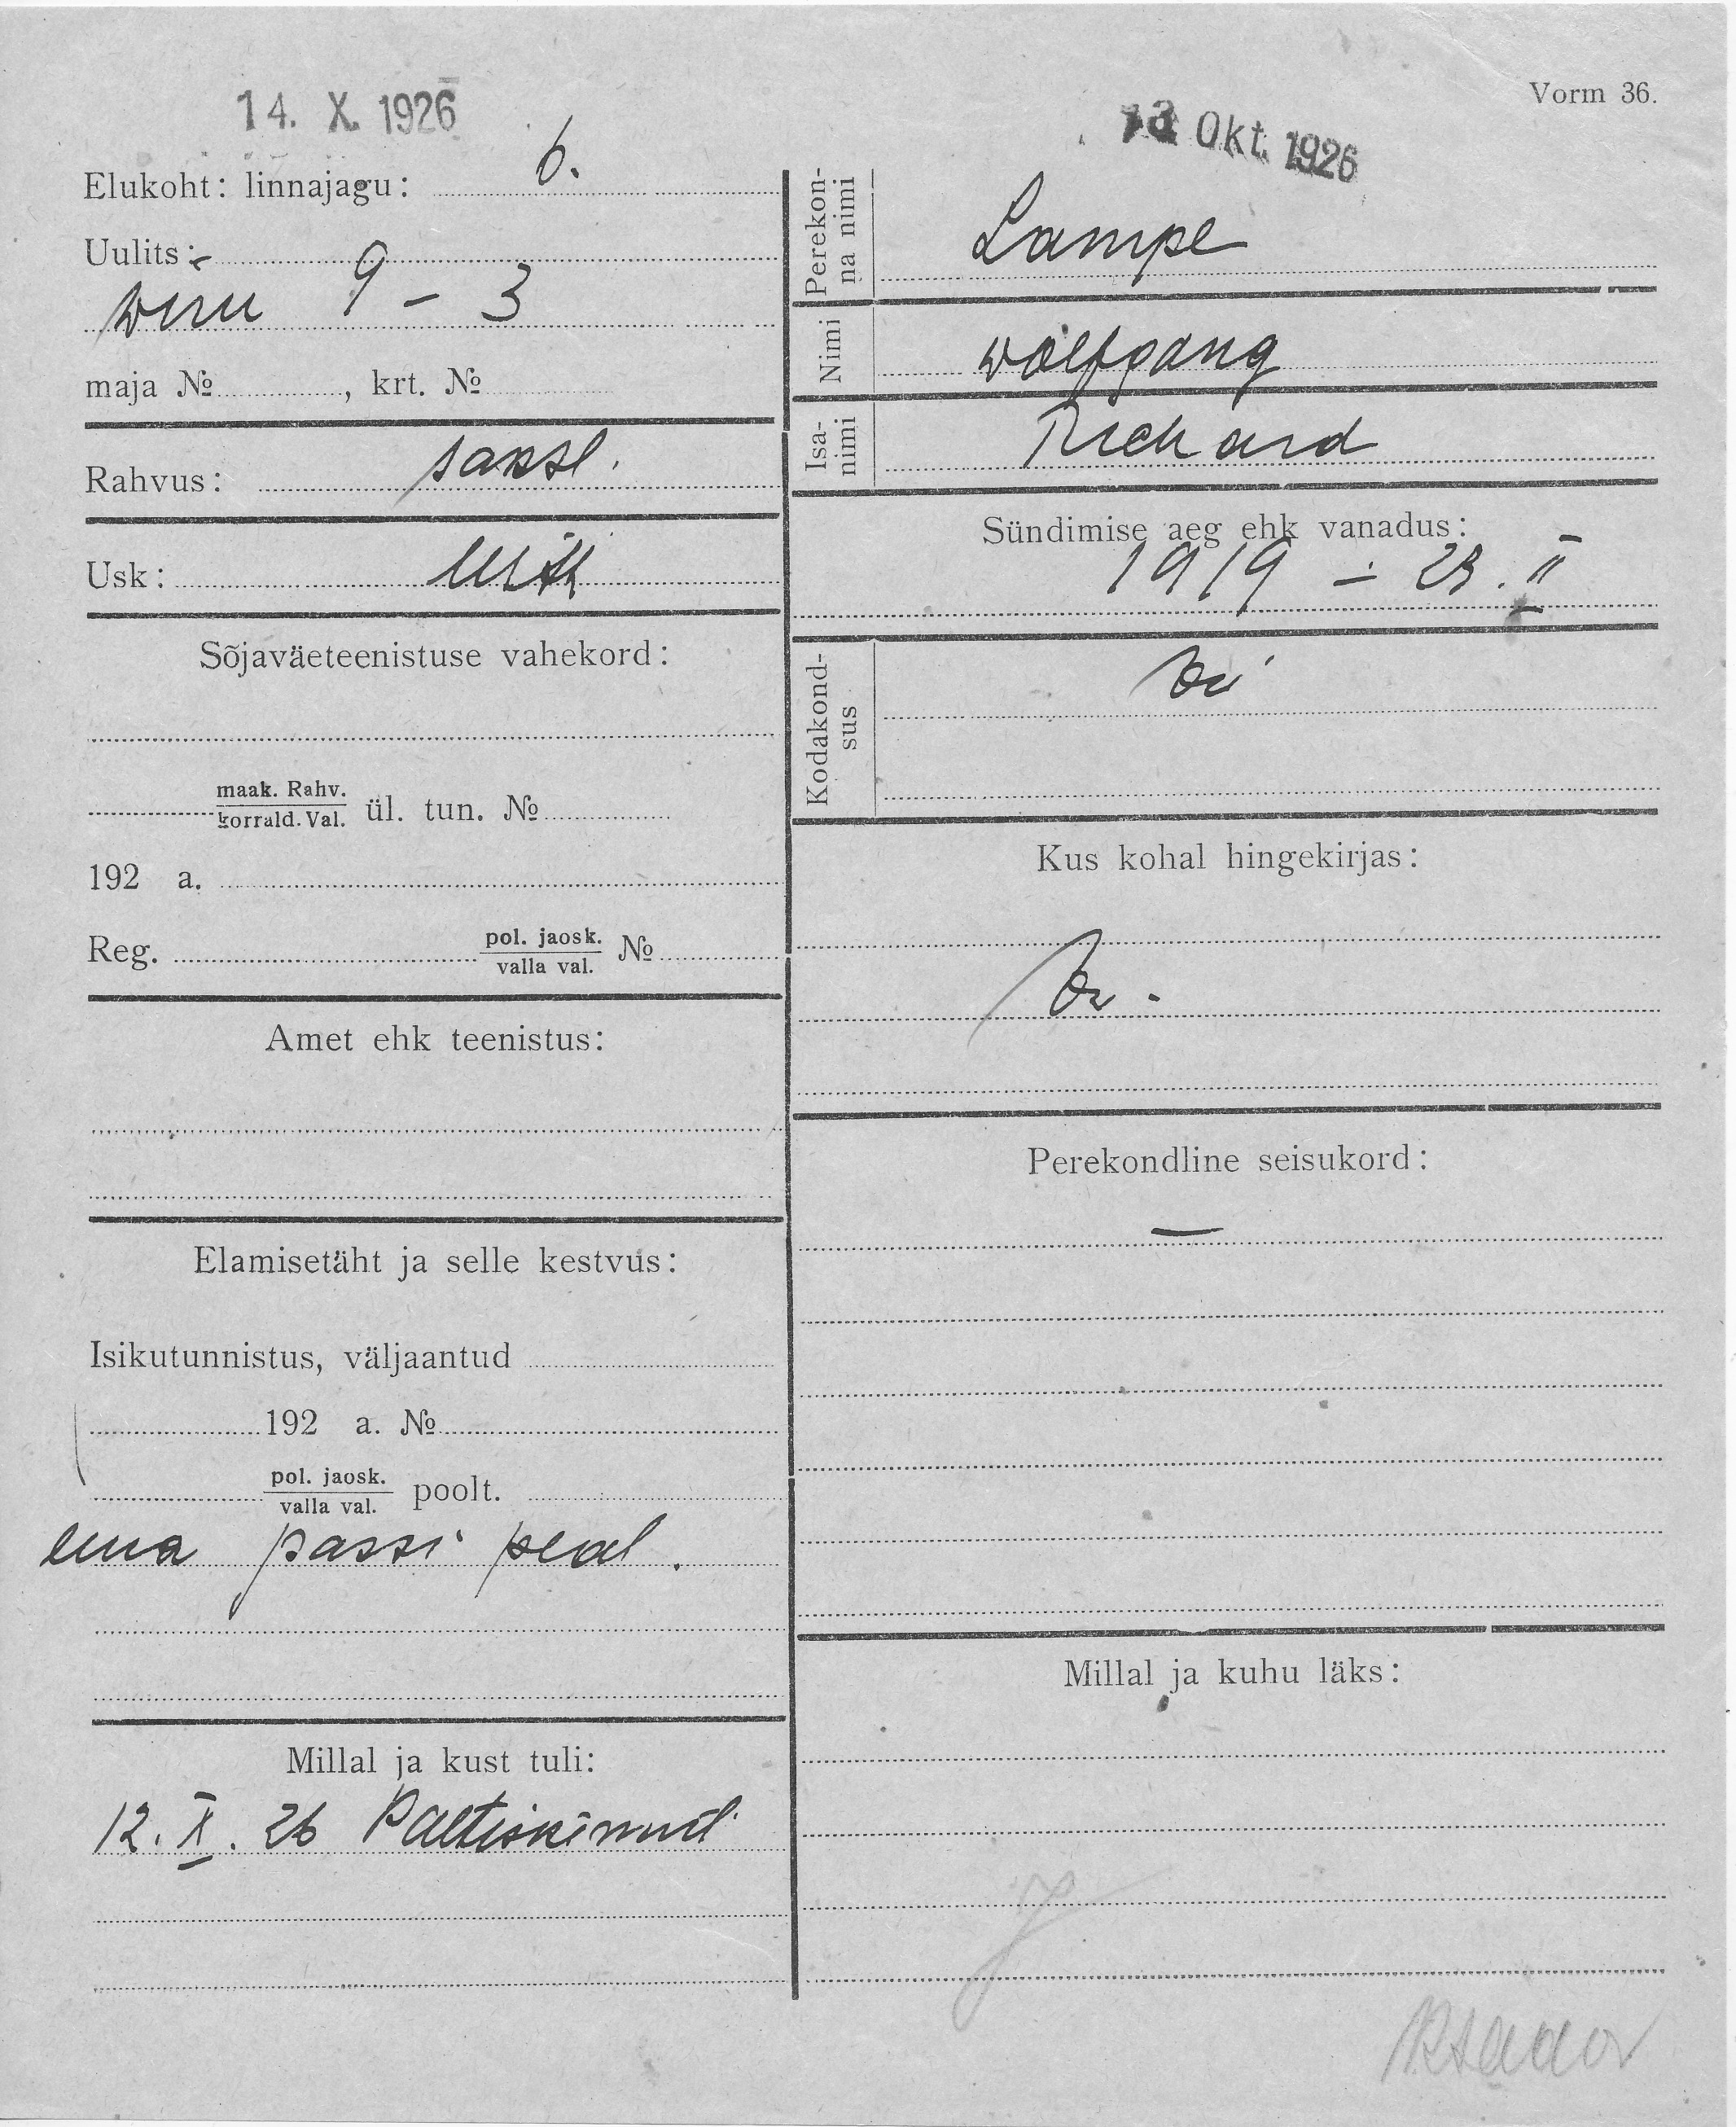 14. X. 1926
Elukoht: linnajagu: 6.
Uulits:
Wiru 9 – 3
maja №, krt. №
Rahvus: saksl.
Usk:
Sõjaväeteenistuse vahekord:
maak. Rahv.
korrald. Val. ül. tun. №
192 a.
Reg. pol. jaosk. №
valla val.
Amet ehk teenistus:
Elamisetäht ja selle kestvus:
Isikutunnistus, väljaantud
192 a. №
pol. jaosk.
valla val. poolt.
ema passi peal.
Millal ja kust tuli:
12. X. 26 Paltiskimüst
Vorm 36.
13 Okt. 1926
Perekon-
na nimi
Lampe
Nimi
Wolfgang
Isa-
nimi
Richard
Sündimise aeg ehk vanadus:
1919 – 23. II
Kodakond-
sus
Kus kohal hingekirjas:
Perekondline seisukord:
—
Millal ja kuhu läks: